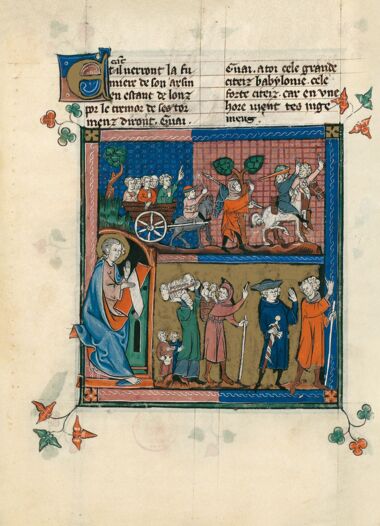 Et cil
il uerront la fu
miere de son arsin
en estant de lonz
por le tremor de ses tor
menz diront. Guai.
Guai. a toi cele grande
citeiz babylonie. cele
forte citeiz. car en vne
hore uient tes iuge
menz.